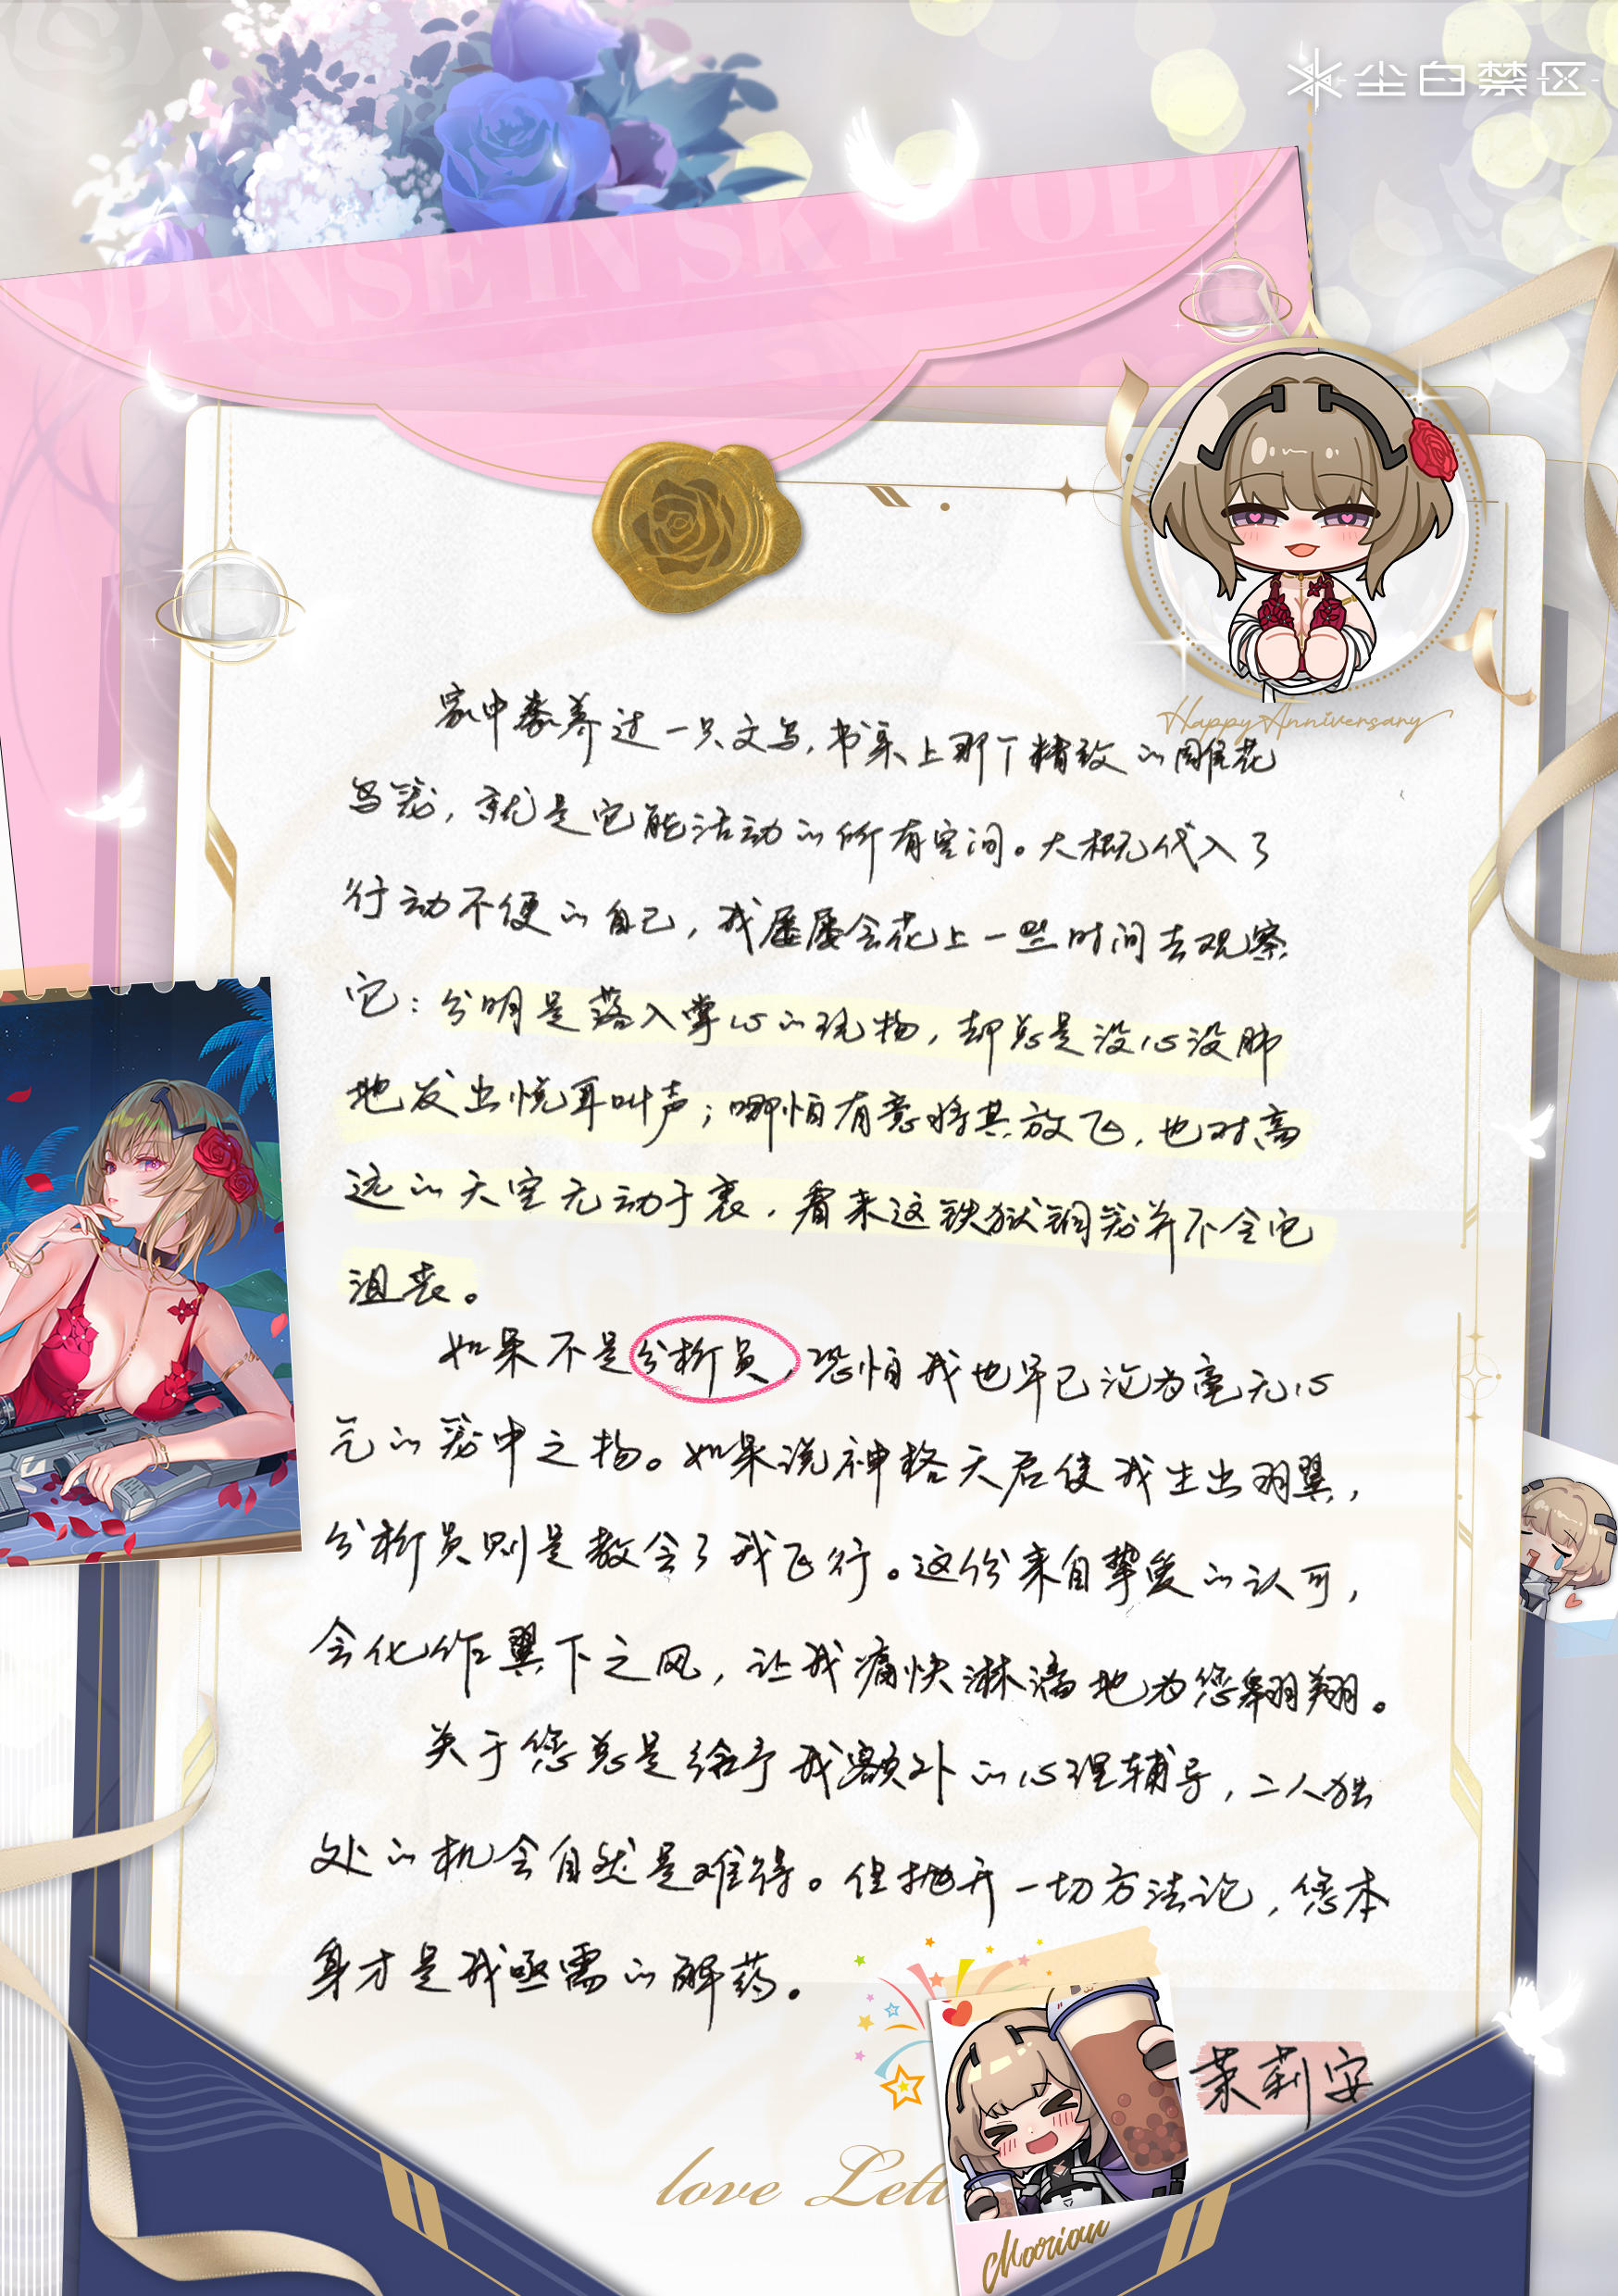 尘白禁区
SPENSE IN SKYTOPI
Happy Anniversary
家中豢养过一只文鸟，书桌上那个精致的雕花
鸟笼，就是它能活动的所有空间。大概代入了
行动不便的自己，我屡屡会花上一些时间去观察
它：分明是落入掌心的玩物，却总是没心没肺
地发出悦耳叫声；哪怕有意将其放飞，也对高
远的天空无动于衷，看来这铁狱铜笼并不令它
沮丧。
如果不是分析员，恐怕我也早已沦为毫无心
气的笼中之物。如果说神格天启使我生出羽翼，
分析员则是教会了我飞行。这份来自挚爱的认可，
会化作翼下之风，让我痛快淋漓地为您翱翔。
关于您总是给予我额外的心理辅导，二人独
处的机会自然是难得。但抛开一切方法论，您本
身才是我亟需的解药。
茉莉安
love Lett
Marian